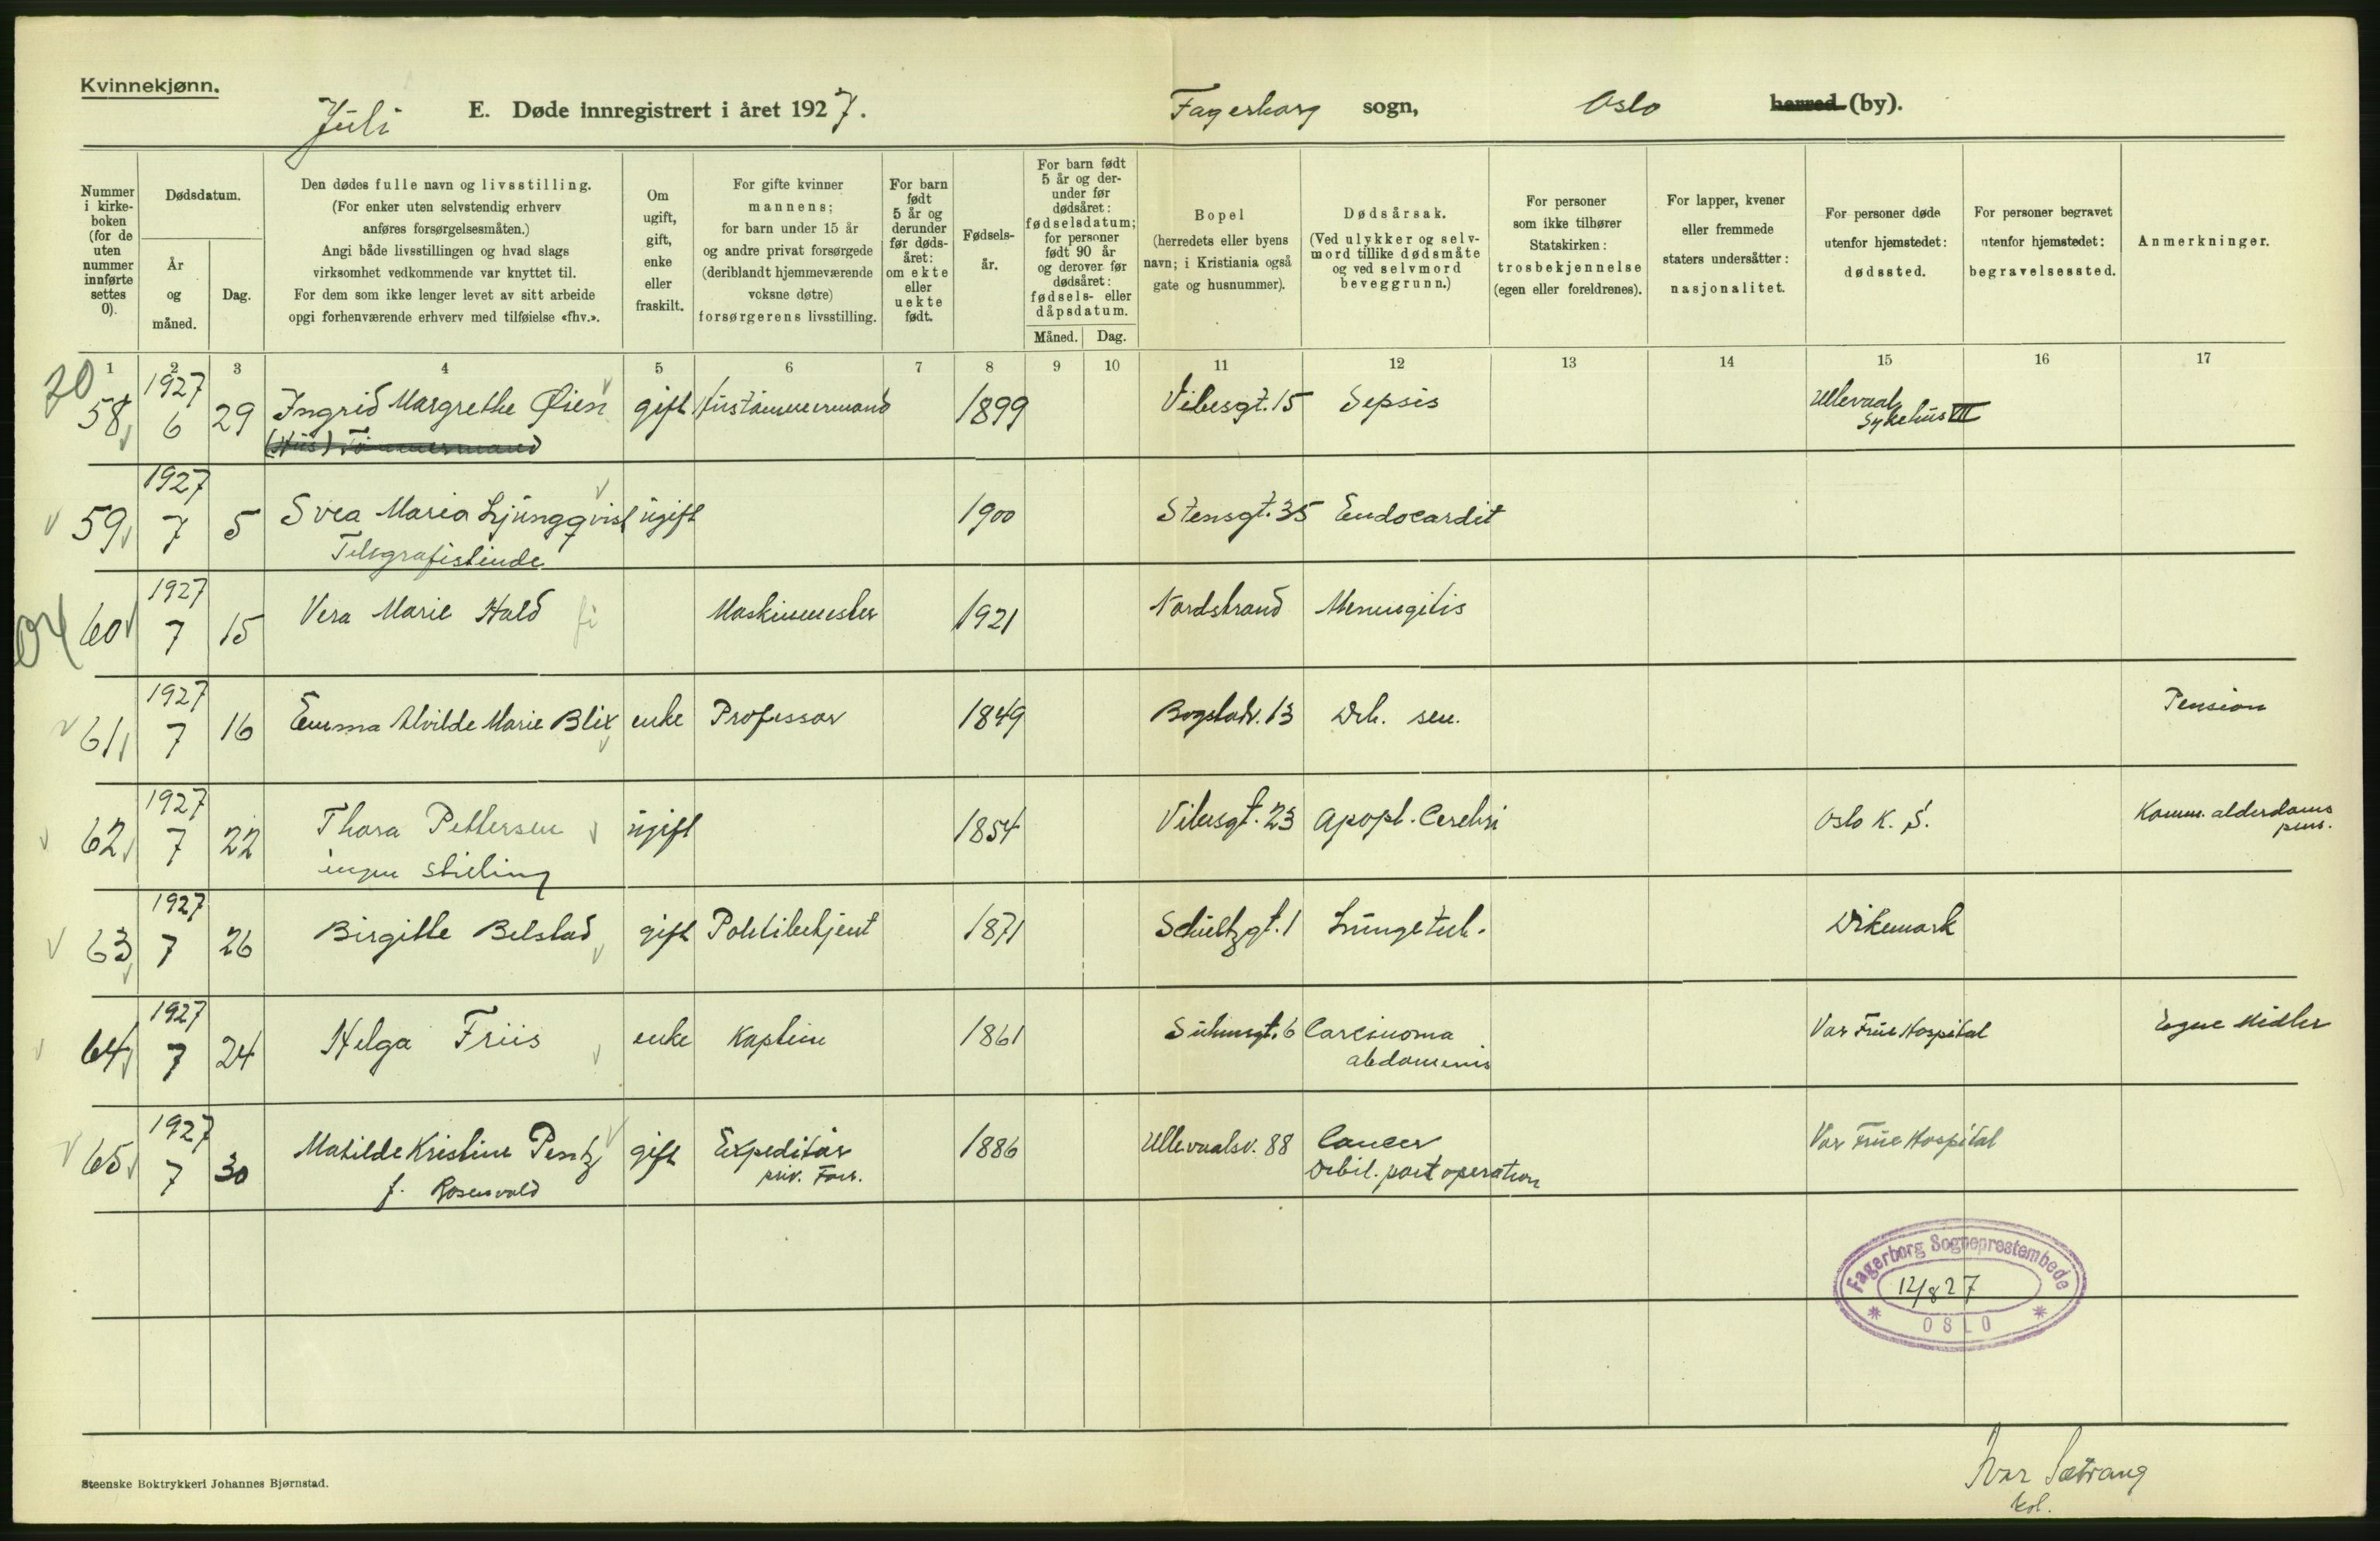 Kvinnekjønn.
Juli E. Døde innregistrert i året 1927. Fagerborg sogn, Oslo herred (by).
Nummer i kirke-boken (for de uten nummer innførte settes 0).
Dødsdatum.
År og måned.
Dag.
Den dødes fulle navn og livsstilling.
(For enker uten selvstendig erhverv
anføres forsørgelsesmåten.)
Angi både livsstillingen og hvad slags
virksomhet vedkommende var knyttet til.
For dem som ikke lenger levet av sitt arbeide
opgi forhenværende erhverv med tilføielse «fhv.».
Om ugift, gift, enke eller fraskilt.
For gifte kvinner
mannens;
for barn under 15 år
og andre privat forsørgede
(deriblandt hjemmeværende
voksne døtre)
forsørgerens livsstilling.
For barn født 5 år og derunder før døds-året: om ekte eller uekte født.
Fødsels-år.
For barn født 5 år og der-under før dødsåret: fødselsdatum; for personer født 90 år og derover før dødsåret: fødsels- eller dåpsdatum.
Måned. Dag.
Bopel
(herredets eller byens
navn; i Kristiania også
gate og husnummer).
Dødsårsak.
(Ved ulykker og selv-
mord tillike dødsmåte
og ved selvmord
beveggrunn.)
For personer
som ikke tilhører
Statskirken:
trosbekjennelse
(egen eller foreldrenes).
For lapper, kvener
eller fremmede
staters undersåtter:
nasjonalitet.
For personer døde
utenfor hjemstedet:
dødssted.
For personer begravet
utenfor hjemstedet:
begravelsessted.
Anmerkninger.
1 2 3 4 5 6 7 8 9 10 11 12 13 14 15 16 17
20
1927
58 6 29 Ingrid Margrethe Øien gift Hustømmermand 1899 Vibesgt. 15 Sepsis Ullevaal Sykehus VII
(Hus) Tømmermand
1927
59 7 5 Svea Maria Ljungqvist ugift 1900 Stensgt. 35 Endocardit
Telegrafistinde
1927
60 7 15 Vera Marie Hald Maskinmester 1921 Nordstrand Meningitis
1927
61 7 16 Emma Alvilde Marie Blix enke Professor 1849 Bogstadv. 13 Deb. sen. Pension
1927
62 7 22 Thora Pettersen ugift 1854 Vibesgt. 23 Apopl. Cerebri Oslo K. S. Komm. alderdoms pens.
ingen stilling
1927
63 7 26 Birgitte Belstad gift Politibetjent 1871 Schultzgt. 1 Lungetub. Dikemark
1927
64 7 24 Helga Friis enke Kaptein 1861 Suhmsgt. 6 Carcinoma Vor Frue Hospital Egne Midler
abdominis
1927
65 7 30 Matilde Kristine Pentz gift Expeditør 1886 Ullevaalsv. 88 Cancer Vor Frue Hospital
f. Rosenvold priv. Forr. Debil. post operation
Fagerborg Sogneprestembede
12/8 27
OSLO
Steenske Boktrykkeri Johannes Bjørnstad.
Ivar Sætrang
kal.